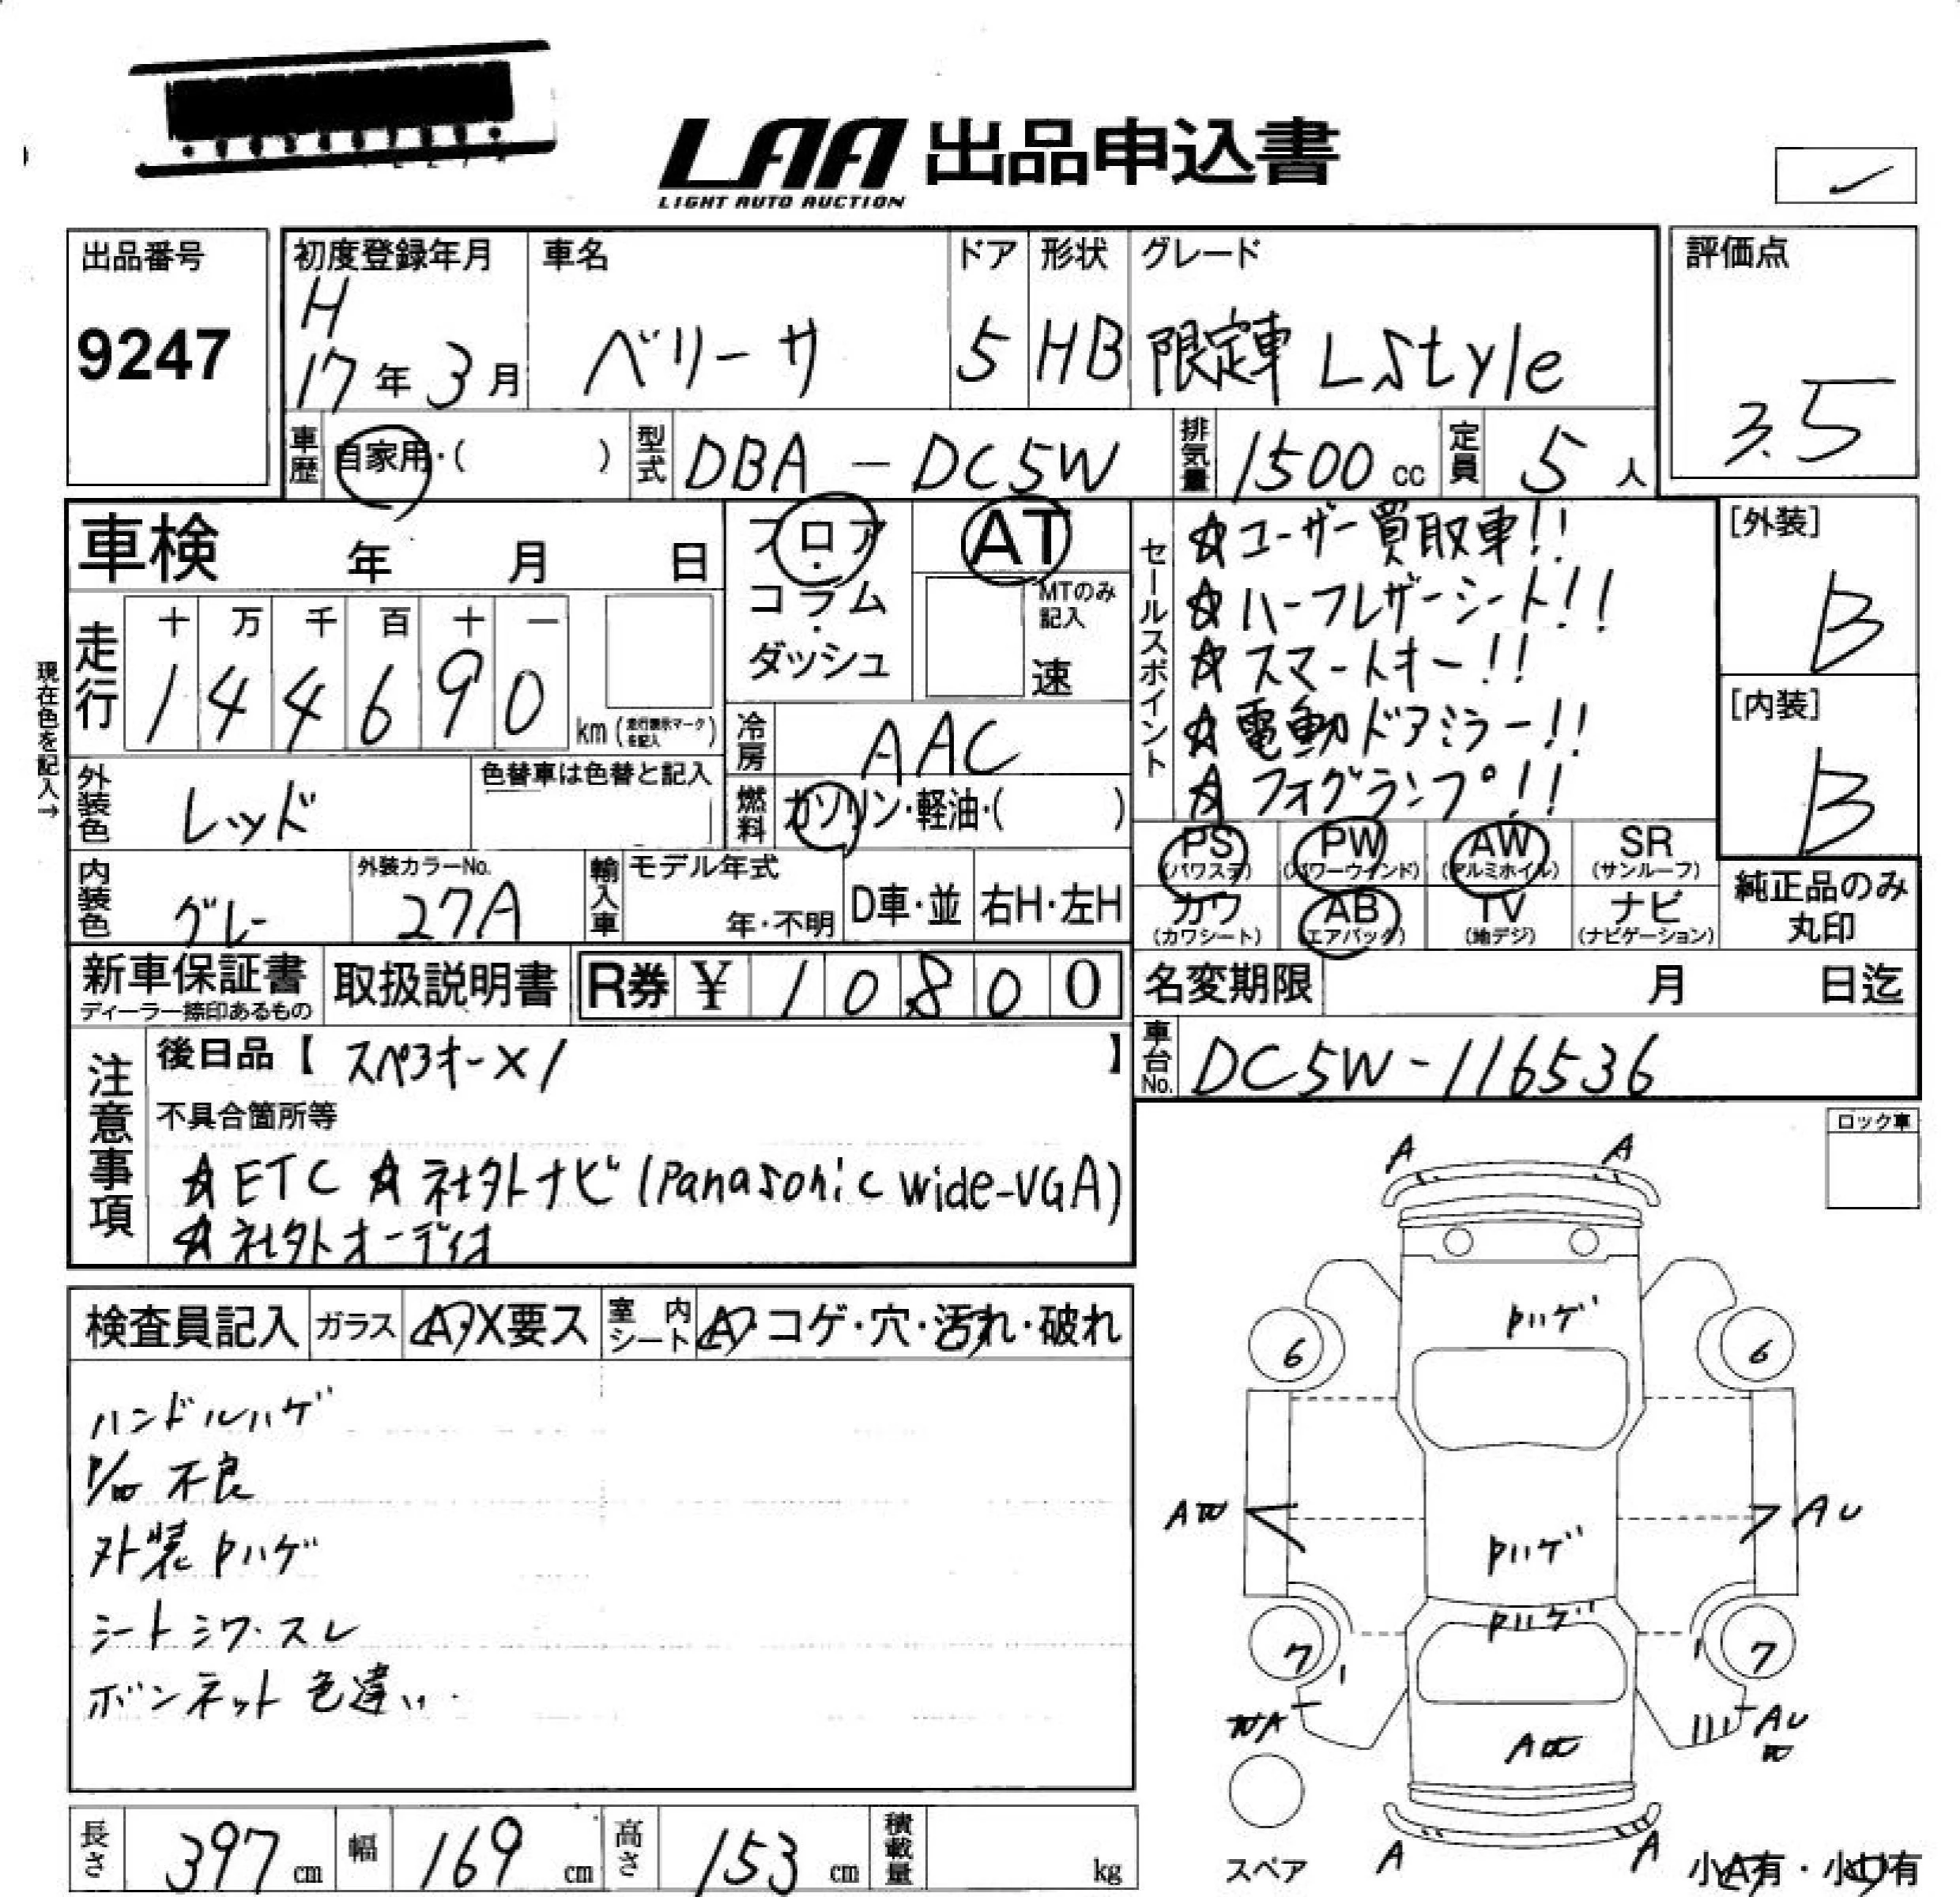 LAA 出品申込書
LIGHT AUTO AUCTION
出品番号
9247
初度登録年月
H
17年3月
車名
ベリーサ
ドア
5
形状
HB
グレード
限定車 L Style
評価点
3.5
車歴
自家用・( )
型式
DBA - DC5W
排気量
1500 cc
定員
5 人
車検 年 月 日
フロア・
コラム・
ダッシュ
AT
MTのみ
記入
速
セールスポイント
☆ユーザー買取車!!
☆ハーフレザーシート!!
☆スマートキー!!
☆電動ドアミラー!!
☆フォグランプ!!
[外装]
B
[内装]
B
現在色を記入→
走行
十 万 千 百 十 一
1 4 4 6 9 0
km (走行表示マークを記入)
冷房
AAC
外装色
レッド
色替車は色替と記入
燃料
ガソリン・軽油・( )
PS
(パワステ)
PW
(パワーウインド)
AW
(アルミホイル)
SR
(サンルーフ)
カワ
(カワシート)
AB
(エアバック)
TV
(地デジ)
ナビ
(ナビゲーション)
純正品のみ
丸印
内装色
グレー
外装カラーNo.
27A
輸入車
モデル年式
年・不明
D車・並
右H・左H
新車保証書
ディーラー捺印あるもの
取扱説明書
R券 ¥ 1 0 8 0 0
名変期限 月 日迄
車台No.
DC5W-116536
注意事項
後日品【 スペアキー×1 】
不具合箇所等
☆ETC ☆社外ナビ(Panasonic wide-VGA)
☆社外オーディオ
ロック車
検査員記入
ガラス
A・X要ス
室内シート
A・コゲ・穴・汚れ・破れ
ハンドルハゲ
不良
外装Pハゲ
シートシワ・スレ
ボンネット色違い
A A
Pハゲ
6 6
A
A U
Pハゲ
Pハゲ
7 7
A
A U
A
A A
スペア
小A有・小U有
長さ
397 cm
幅
169 cm
高さ
153 cm
積載量
kg